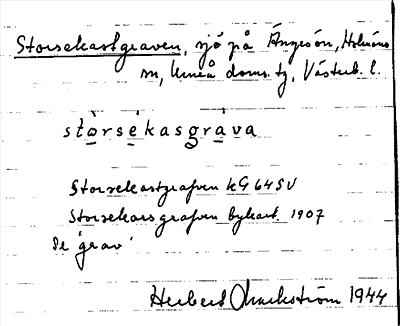 Storsekastgraven, sjö på Ängesön, Holmöns
sn, Umeå doms. tg, Västerb. l.
stòrsékasgràva
Storsekastgrafven kG 64 SV
Storsekarsgrafven bykart. 1907
Se 'grav'
Herbert 1944